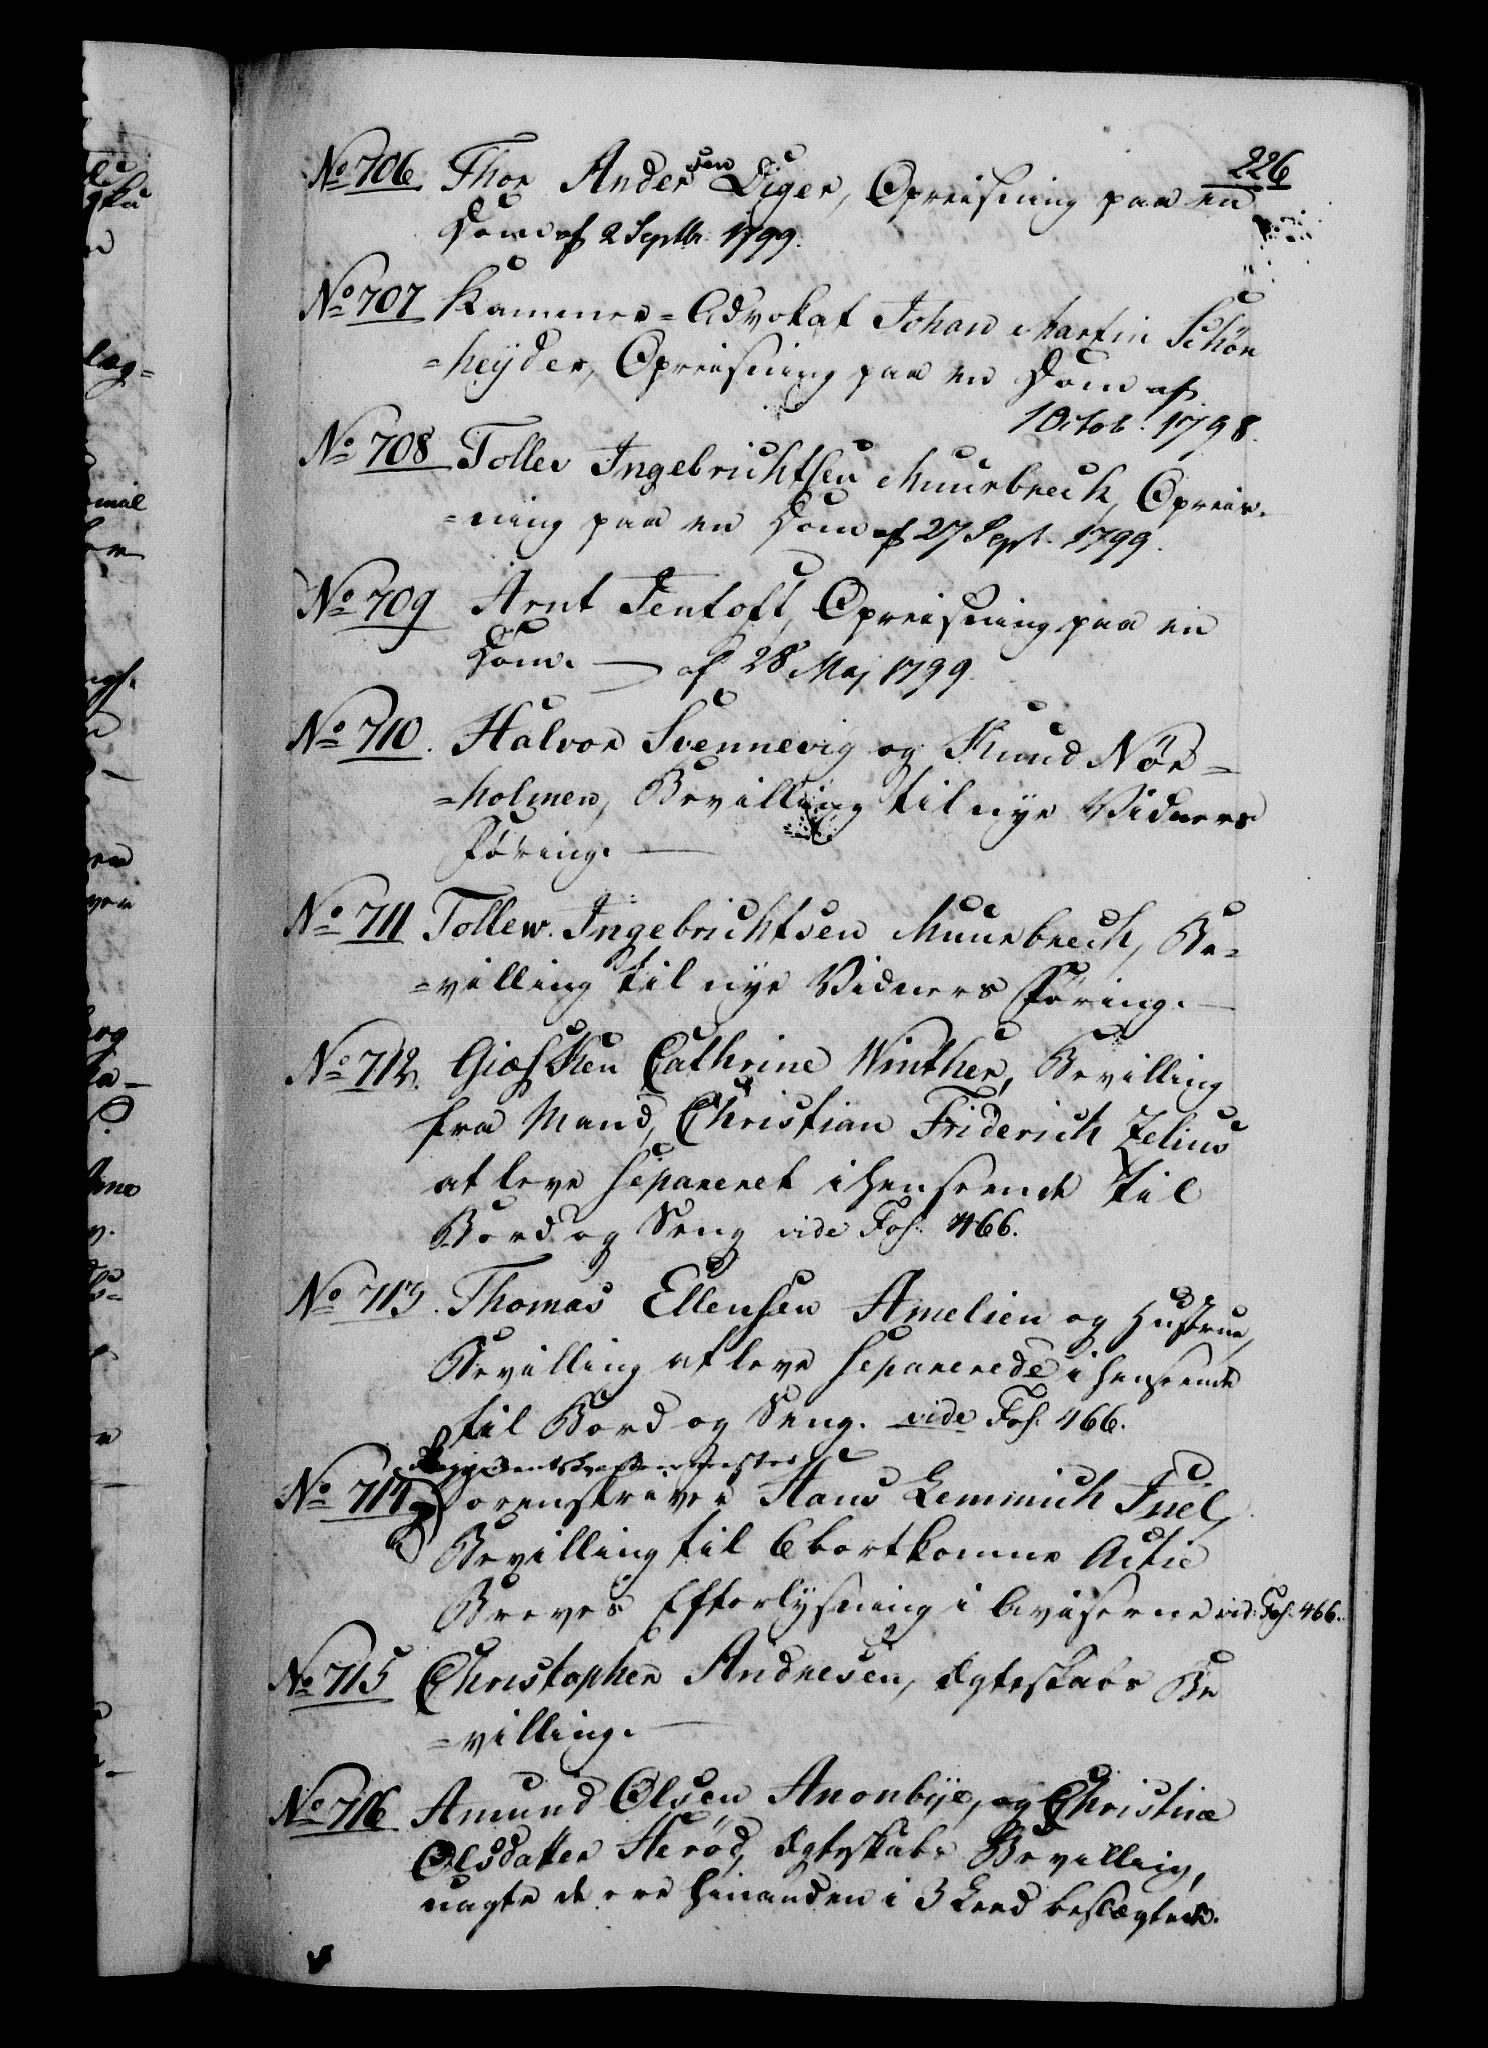 226
No 706. Thor Andersen Diger, Opreisning paa en
Dom af 2 Septbr. 1799.
No 707 Kammer=Advokat Johan Martin Schön
=heyder, Opreisning paa en Dom af
1 Octob. 1798.
No 708 Tollev Ingebrichtsen Muurbrech, Opreis-
=ning paa en Dom af 27 Sept. 1799.
No 709 Arnt Tentoft, Opreisning paa en
Dom. — af 28 Maj 1799.
No 710. Halvor Svennevig og Knud Nör=
=holmen, Bevilling til nye Vidners
Föring. —
No 711 Tollew Ingebrichtsen Muurbrech, Be-
=villing til nye Vidners Föring. —
No 712. Giæsken Cathrine Winther, Bevilling
fra Mand, Christian Friderich Zelius
at leve separeret i henseende til
Bord og Seng vide Fol. 466.
No 713. Thomas Ellensen Amelien og Hustrue,
Bevilling at leve separerede i henseende
til Bord og Seng. vide Fol. 466.
Regimentskvartermester
No 714 Sorenskriver Hans Lemmich Juel,
Bevilling til 6 bortkomne Actie
Breves Efterlysning i Aviserne vid: Fol. 466.
No 715 Christopher Andresen, Ægteskabs Be
=villing. —
No 716 Amund Olsen Anonbye, og Christine
Olsdatter Heröd, Ægteskabs Bevilling,
uagte de ere hinanden i 3 Leed beslægtede.